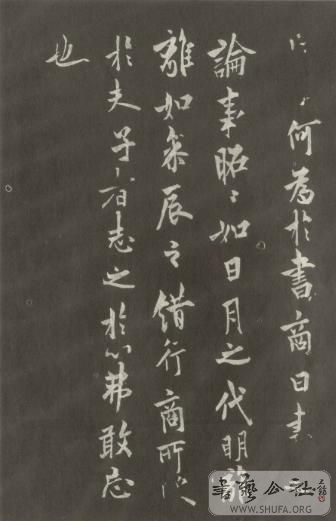 何為於書商曰書
論事昭〻如日月之代明離
離如參辰之錯行商所受
於夫子者志之於心弗敢忘
也
書藝公社
WWW.SHUFA.ORG